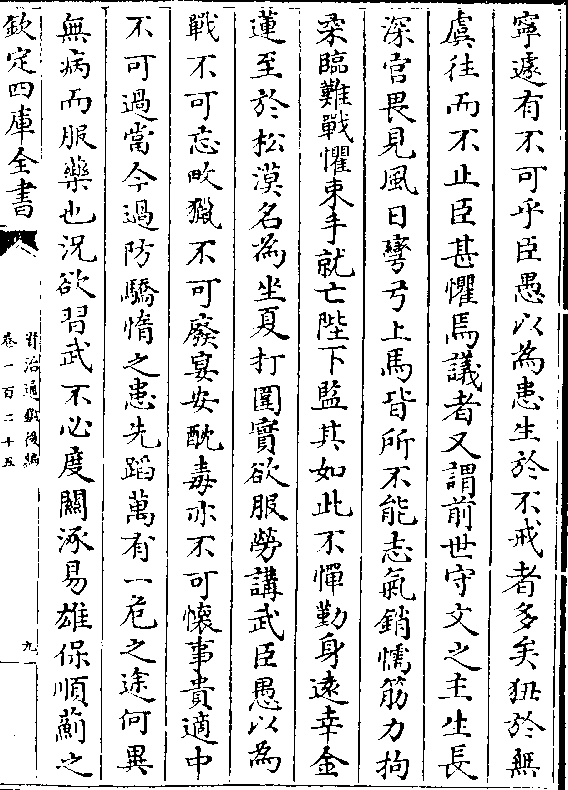 寧遽有不可乎臣愚以為患生於不戒者多矣狃於無
虞往而不止臣甚懼焉議者又謂前世守文之主生長
深宫畏見風日彎弓上馬皆所不能志氣銷懦筋力拘
柔臨難戰懼束手就亡陛下監其如此不憚勤身逺幸金
蓮至於松漠名為坐夏打圍實欲服勞講武臣愚以為
戰不可忘畋獵不可廢宴安酖毒亦不可懐事貴適中
不可過當今過防驕惰之患先蹈萬有一危之途何異
無病而服藥也況欲習武不必度關涿易雄保順薊之
欽定四庫全書
資治通鑑後編
卷一百二十五
九